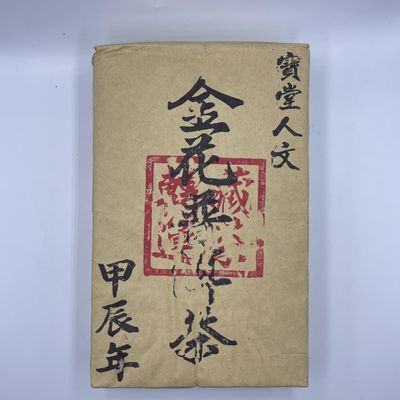 寶堂人文
金花黑磚茶
甲辰年